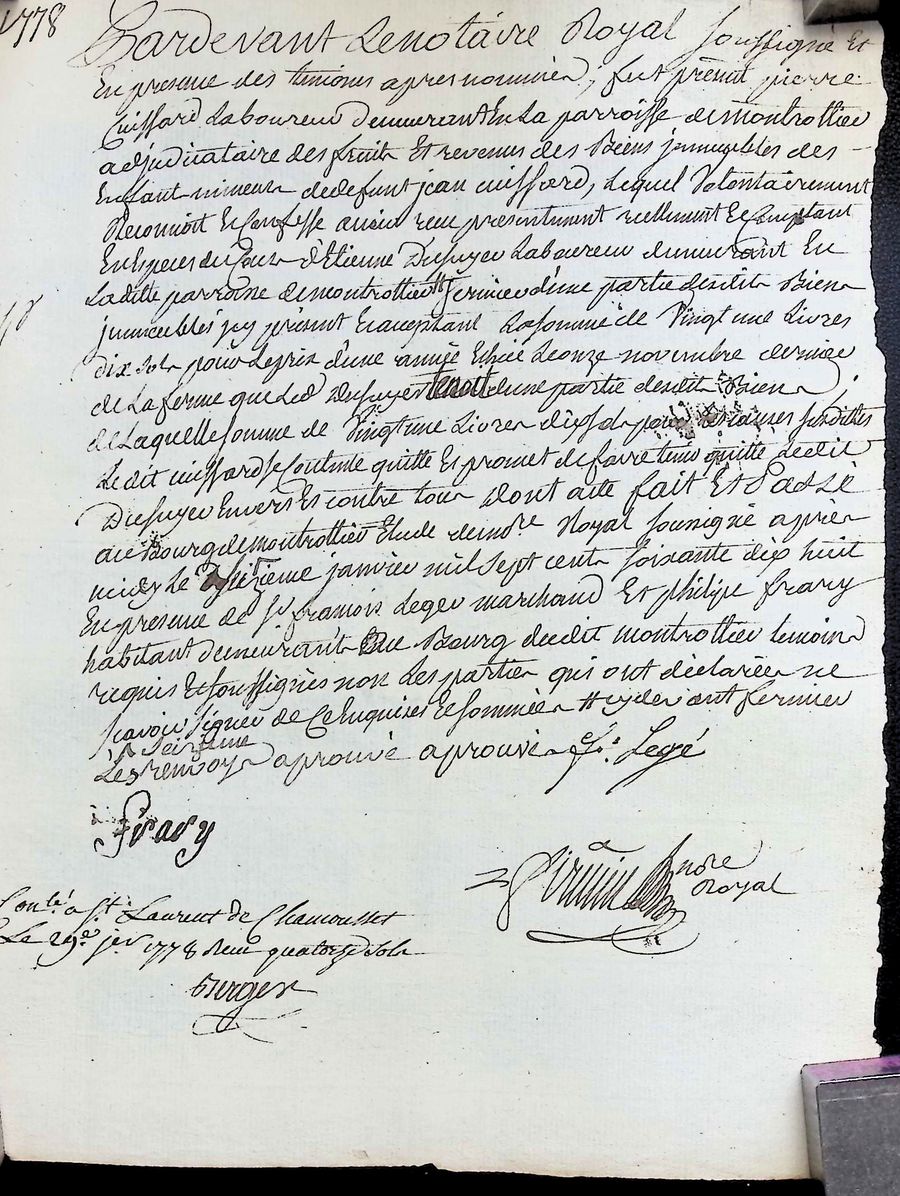 1778
Pardevant Le notaire Royal soussigné Et
En presence des temoins apres nommés, fut présent pierre
Cuissard Laboureur Demeurant En La parroisse de montrottier
adjudicataire des fruits Et revenus des Biens jmmeubles des
Enfant mineurs de defunt jean cuissard, Lequel Volontairement
Reconnoit Et Confesse avoir reçu presentement réellement Et Comptant
En Especes du Cours d'Etienne Dusuyer Laboureur demeurant En
La ditte parroisse de montrottier # fermier d'une partie desdits Biens
jmmeubles jcy présent Et acceptant La somme de Vingt une Livres
dix sols pour Le prix d'une année Echüe Le onze novembre dernier
de La ferme que Led Dusuyer tenoit d'une partie desdits Biens
de Laquelle somme de Vingt une Livres dix sols pour Les causes susdittes
Le dit cuissard se Contente quitte Et promet de faire tenir quitte Ledit
Dusuyer Envers Et contre tous Dont acte fait Et Passé
au Bourg de montrottier Etude de no.re Royal soussigné apres
midy Le seizieme janvier mil sept cent soixante dix huit
En presence de S.r francois Leger marchand Et philipe frary
habitant demeurants Au Bourg dudit montrottier temoins
requis Et soussignés non Les parties qui ont déclarées ne
savoir signer de Ce Enquises Et sommées # cy devant fermier
seizieme
Les renvoys aprouvé aprouvés f.s Legé
Frary
no.re
Royal
Con.lé a S.t Laurent de Chamousset
Le 29.e jer 1778 Reçu quatorze sols
Berger